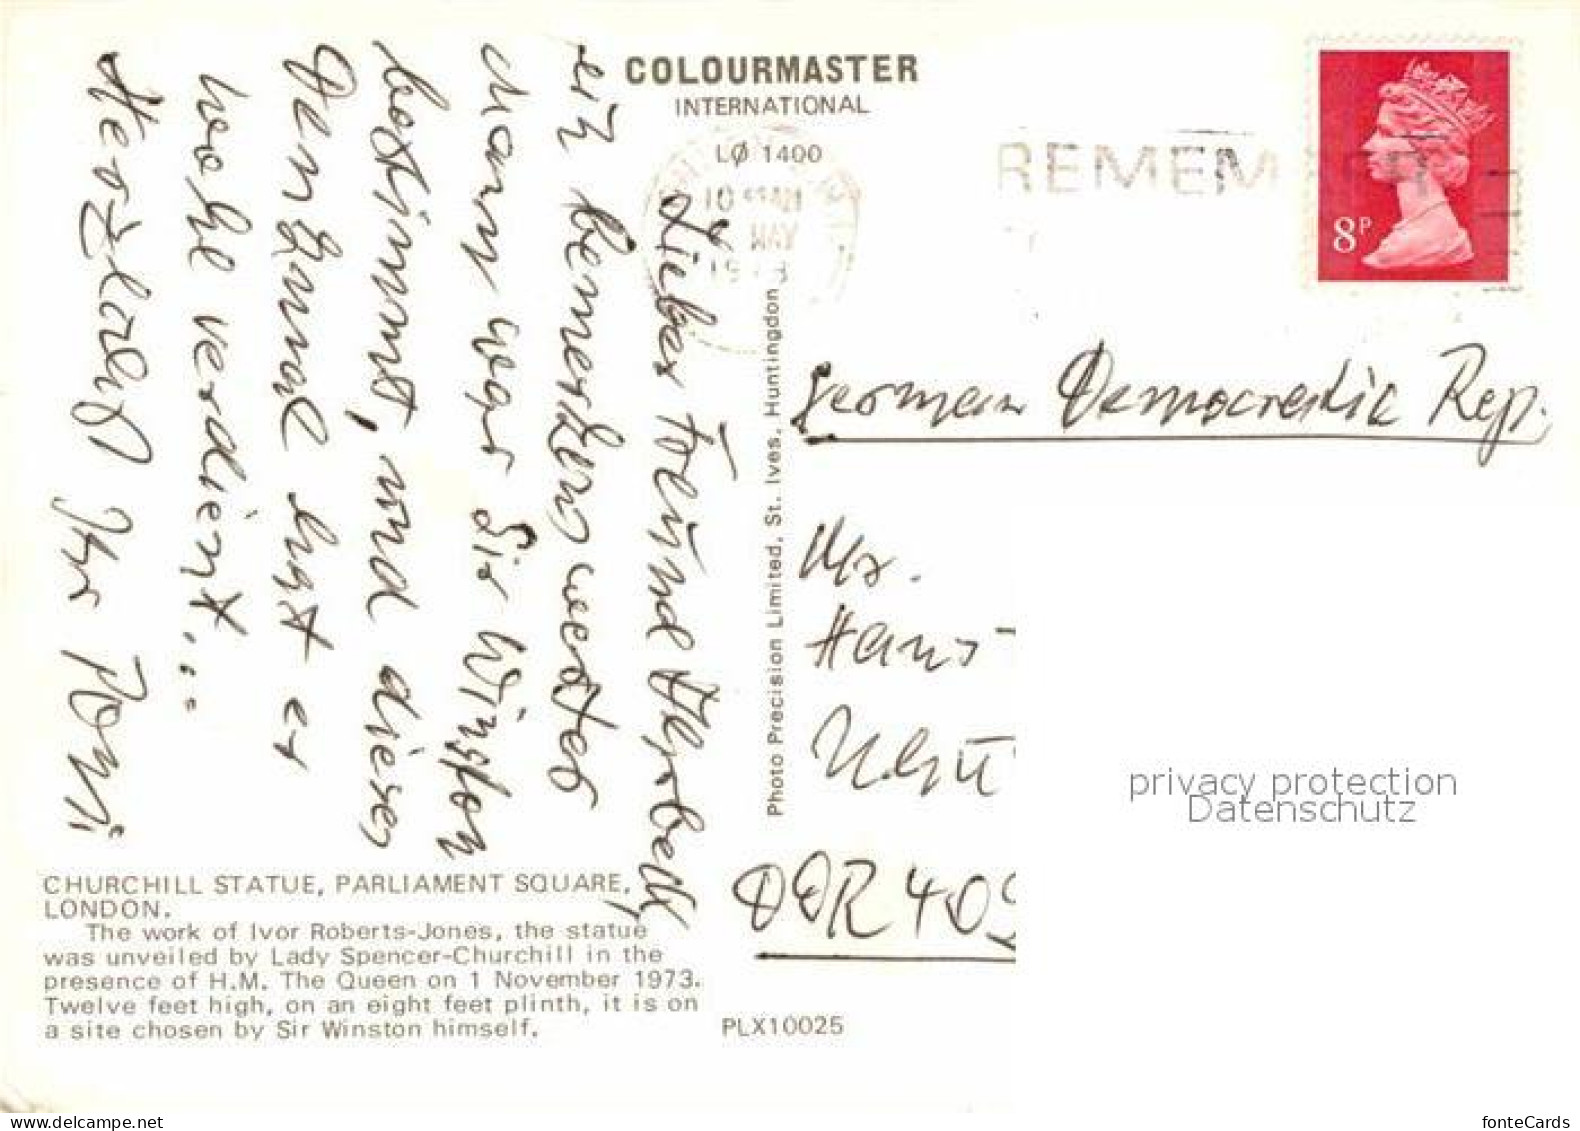 COLOURMASTER
INTERNATIONAL
LØ 1400
10
MAY
REMEM
8P
Lieber Freund
ein bemerkenswerter
Mann war Sir Winston
bestimmt, und dieses
Denkmal hat er
wohl verdient...
Herzlichst Ihr Romi
Photo Precision Limited, St. Ives, Huntingdon
German Democratic Rep.
Mr.
Hans
DDR 409
CHURCHILL STATUE, PARLIAMENT SQUARE,
LONDON.
The work of Ivor Roberts-Jones, the statue
was unveiled by Lady Spencer-Churchill in the
presence of H.M. The Queen on 1 November 1973.
Twelve feet high, on an eight feet plinth, it is on
a site chosen by Sir Winston himself.
PLX10025
privacy protection
Datenschutz
fonteCards